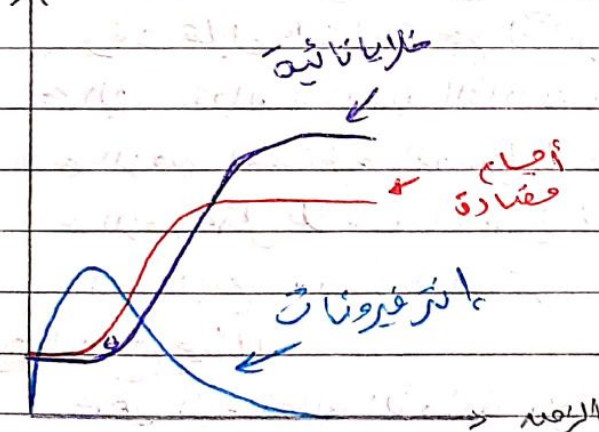 خلايا تائية
أجسام
مضادة
انترفيرونات
الزمن